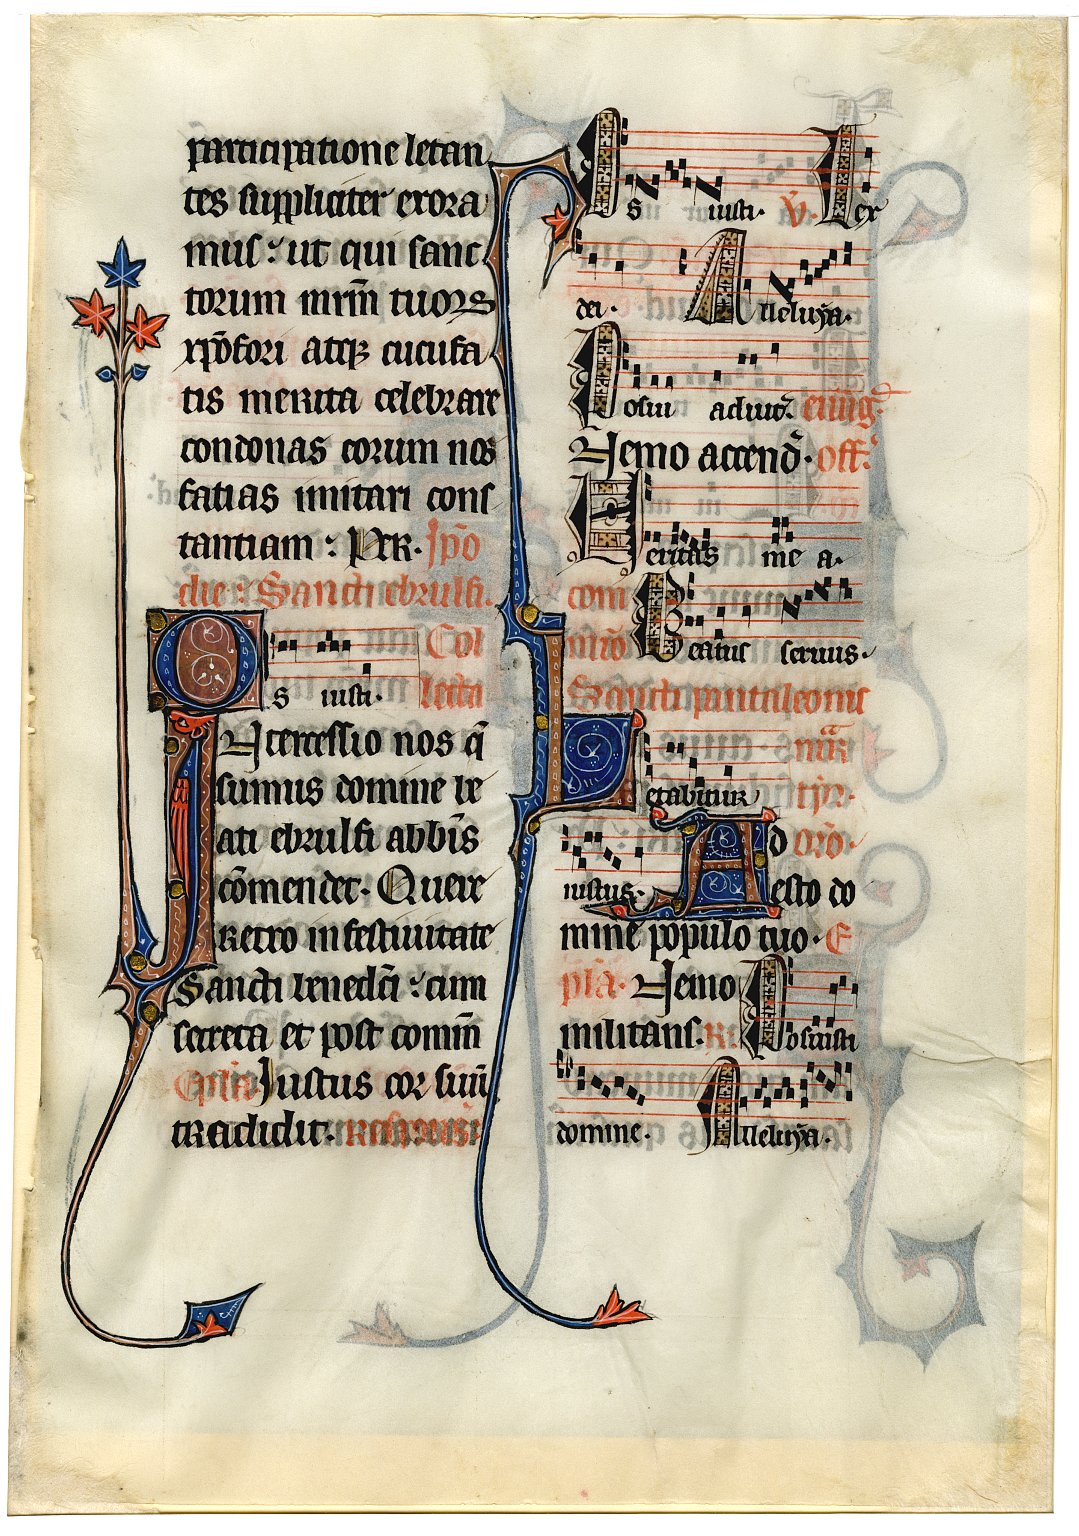 participatione letan
tes suppliciter exora
mus: ut qui sanc
torum mr̄m tuor
xp̄ofori atq cucufa
tis merita celebrare
condonas eorum nos
fatias imitari cons
tantiam: Per. Ip̄o
die: Sancti ebrulfi.
Os iusti. Col
lecta
Intercessio nos q̄
sumus domine be
ati ebrulfi abb̄is
cōmendet. Quere
retro in festiuitate
Sancti benedc̄i: cum
secreta et post comm̄
Ep̄la. Iustus cor suū
tradidit.
Os iusti. V. Lex
dei. Alleluya.
Posui adiut. euuḡ.
Nemo accend̄. off.
Veritas me a.
com
Beatus seruus.
Sancti pantaleonis
mār
tyr.
Letabitur
iustus. Ad orō.
esto do
mine populo tuo. E
pl̄a. Nemo
militans. R. Posuisti
domine. Alleluya.